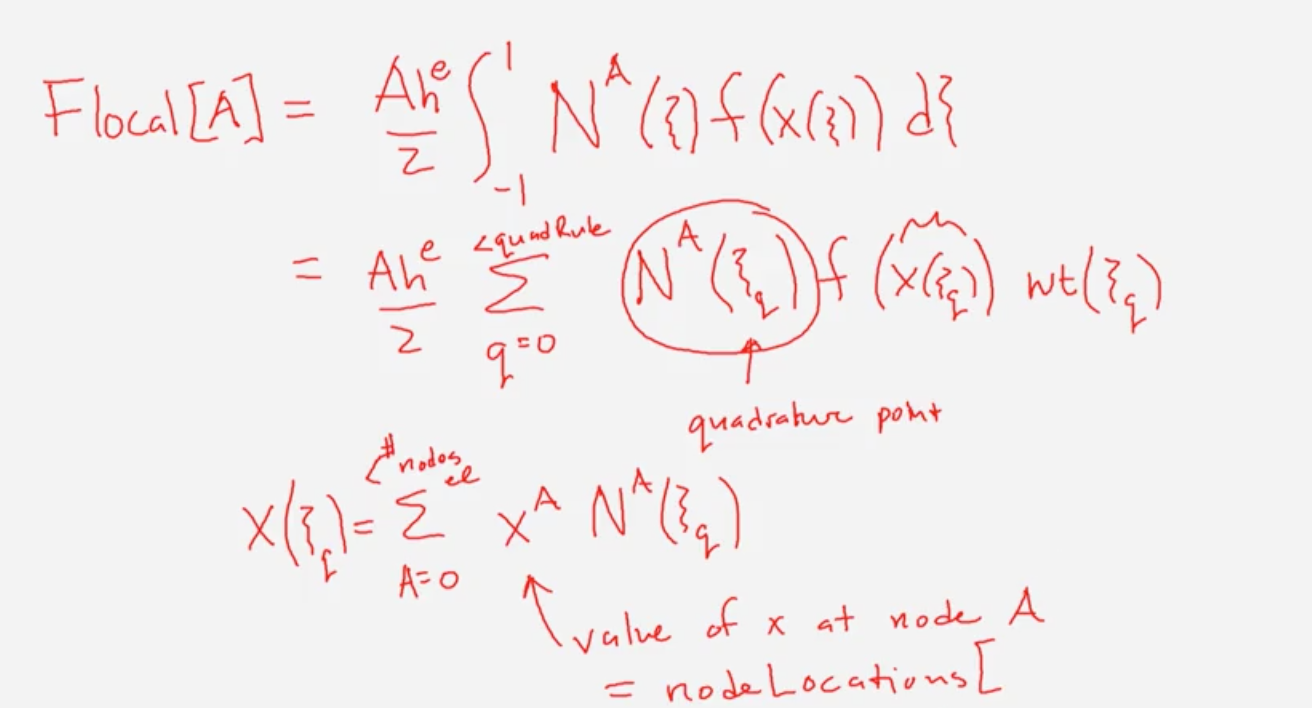 Flocal[A] = Ahᵉ/2 ∫₋₁¹ Nᴬ(ξ) f(x(ξ)) dξ
= Ahᵉ/2 Σ_{q=0}^{<quadRule} Nᴬ(ξ_q) f(x(ξ_q)) wt(ξ_q)
quadrature point
x(ξ_q) = Σ_{A=0}^{<#nodes_el} xᴬ Nᴬ(ξ_q)
value of x at node A
= nodeLocations[